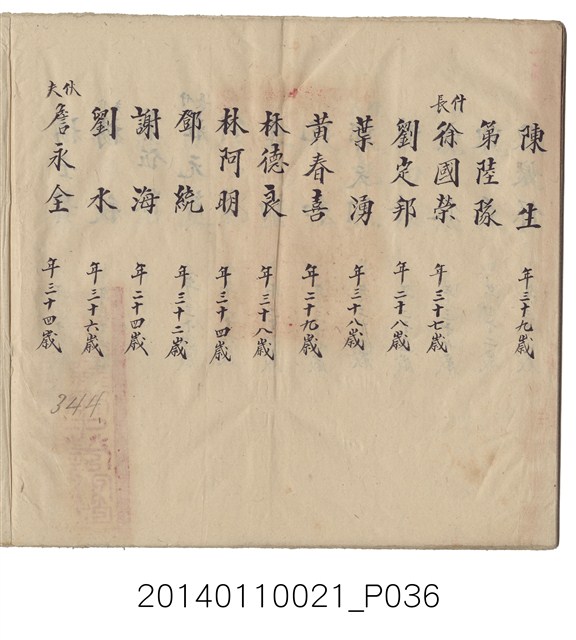 陳生 年三十九歲
第陸隊
什長 徐國榮 年三十七歲
劉定邦 年二十八歲
葉湧 年三十八歲
黃春喜 年二十九歲
林德良 年三十八歲
林阿明 年三十四歲
鄧統 年三十二歲
謝海 年二十四歲
劉水 年三十六歲
伙夫 詹永全 年三十四歲
344
20140110021_P036